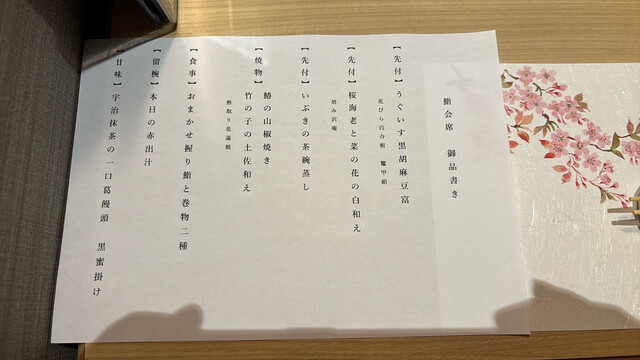 鮨会席　御品書き
【先付】うぐいす黒胡麻豆富
花びら百合根　鼈甲餡
【先付】桜海老と菜の花の白和え
刻み沢庵
【先付】いぶきの茶碗蒸し
【焼物】鰆の山椒焼き
竹の子の土佐和え
酢取り花蓮根
【食事】おまかせ握り鮨と巻物二種
【留椀】本日の赤出汁
【甘味】宇治抹茶の一口葛饅頭　黒蜜掛け